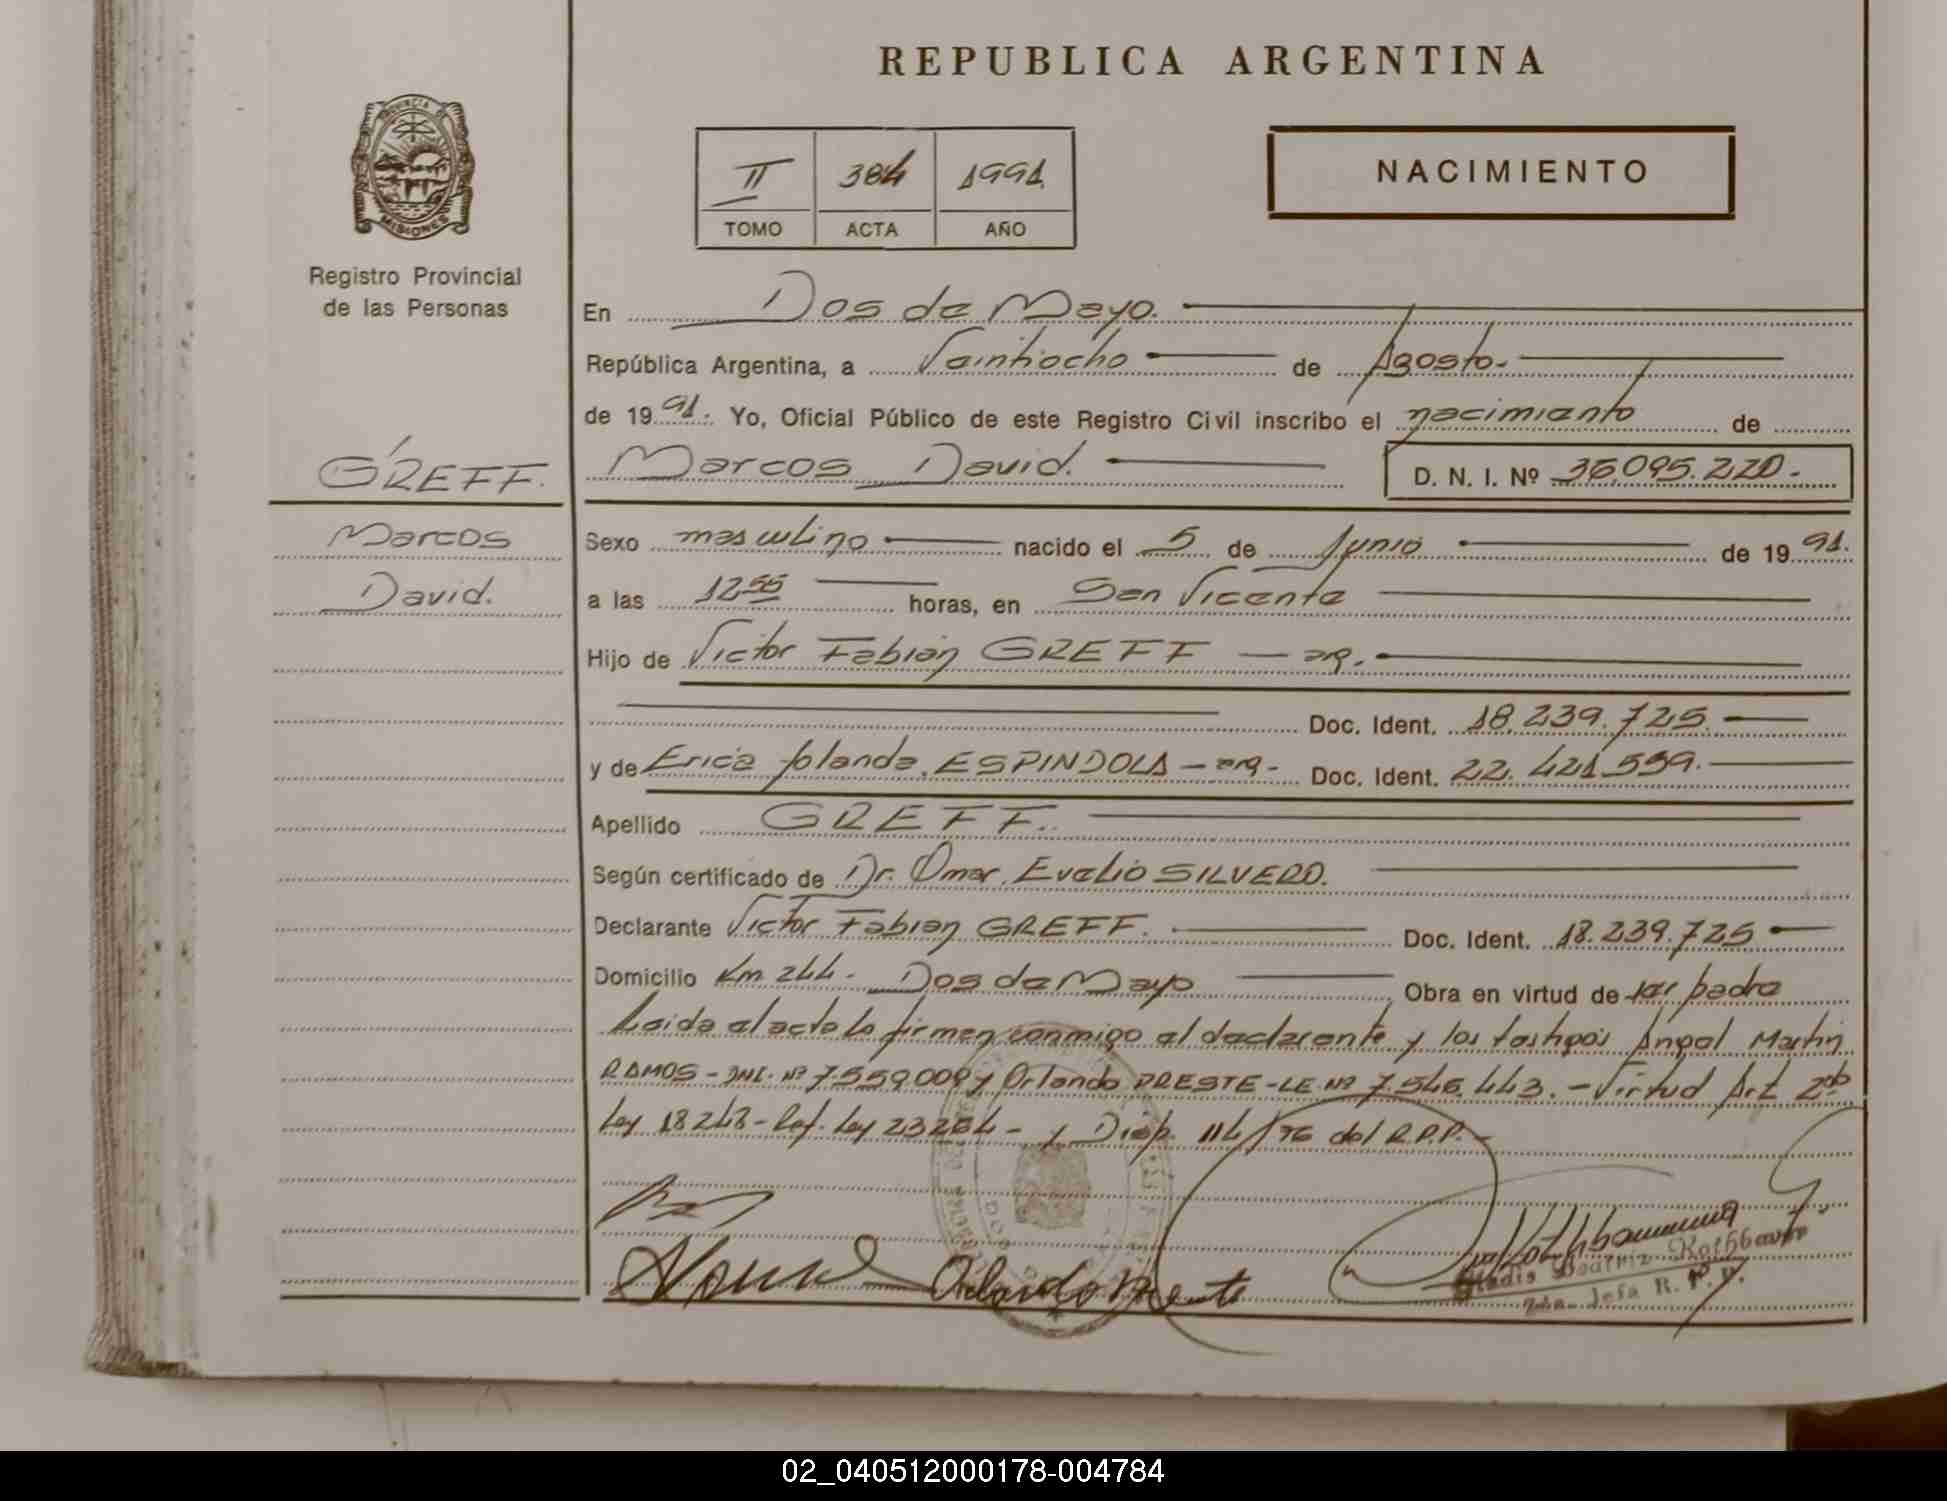 REPUBLICA ARGENTINA
PROVINCIA DE
MISIONES
Registro Provincial
de las Personas
II 384 1991
TOMO ACTA AÑO
NACIMIENTO
En Dos de Mayo.
República Argentina, a Veintiocho de Agosto.
de 1991. Yo, Oficial Público de este Registro Civil inscribo el nacimiento de
GREFF.
Marcos David. D. N. I. Nº 36.095.220.
Marcos
David.
Sexo masculino nacido el 5 de Junio de 1991.
a las 12 55 horas, en San Vicente
Hijo de Victor Fabian GREFF — arg.
Doc. Ident. 18.239.725.
y de Erica Yolanda ESPINDOLA — arg - Doc. Ident. 22.421.559.
Apellido GREFF.
Según certificado de Dr. Omar Evelio SILVERO.
Declarante Victor Fabian GREFF. Doc. Ident. 18.239.725
Domicilio Km 244. Dos de Mayo Obra en virtud de ser padre
Leida el acta la firman conmigo el declarante y los testigos Angel Martin
RAMOS - DNI. Nº 7.559.009 y Orlando PRESTE - LE. Nº 7.546.443. - Virtud Art. 2do
Ley 18248 - Ref. Ley 23264 - y Disp. 114/76 del R.P.P. -
Gladis Beatriz
Jefa R. P. P.
02_040512000178-004784